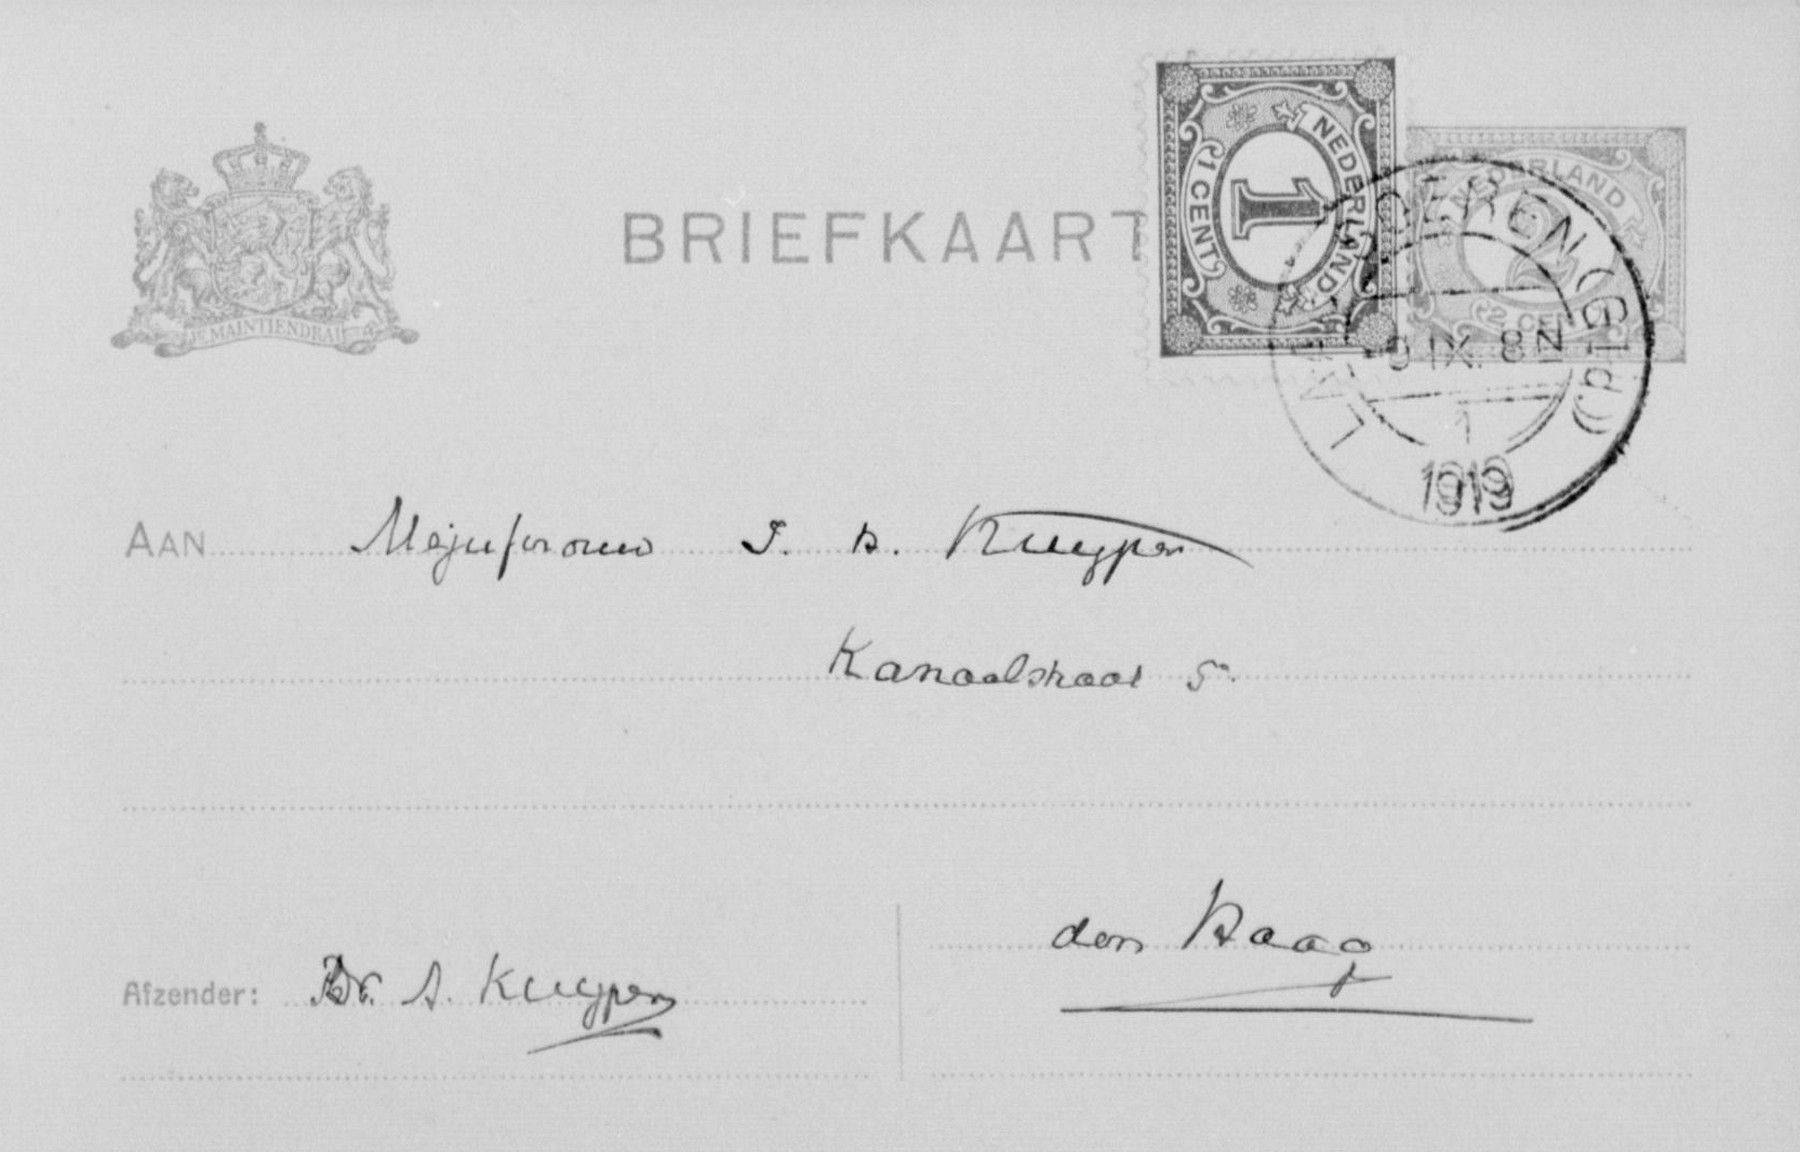 BRIEFKAART
JE MAINTIENDRAI
NEDERLAND
1
1 CENT
NEDERLAND
2
2 CENT
LUNTEREN (Gld)
9 IX. 8N
1
1919
AAN Mejufvrouw J. H. Kuyper
Kanaalstraat 5
den Haag
Afzender: Dr. A. Kuyper